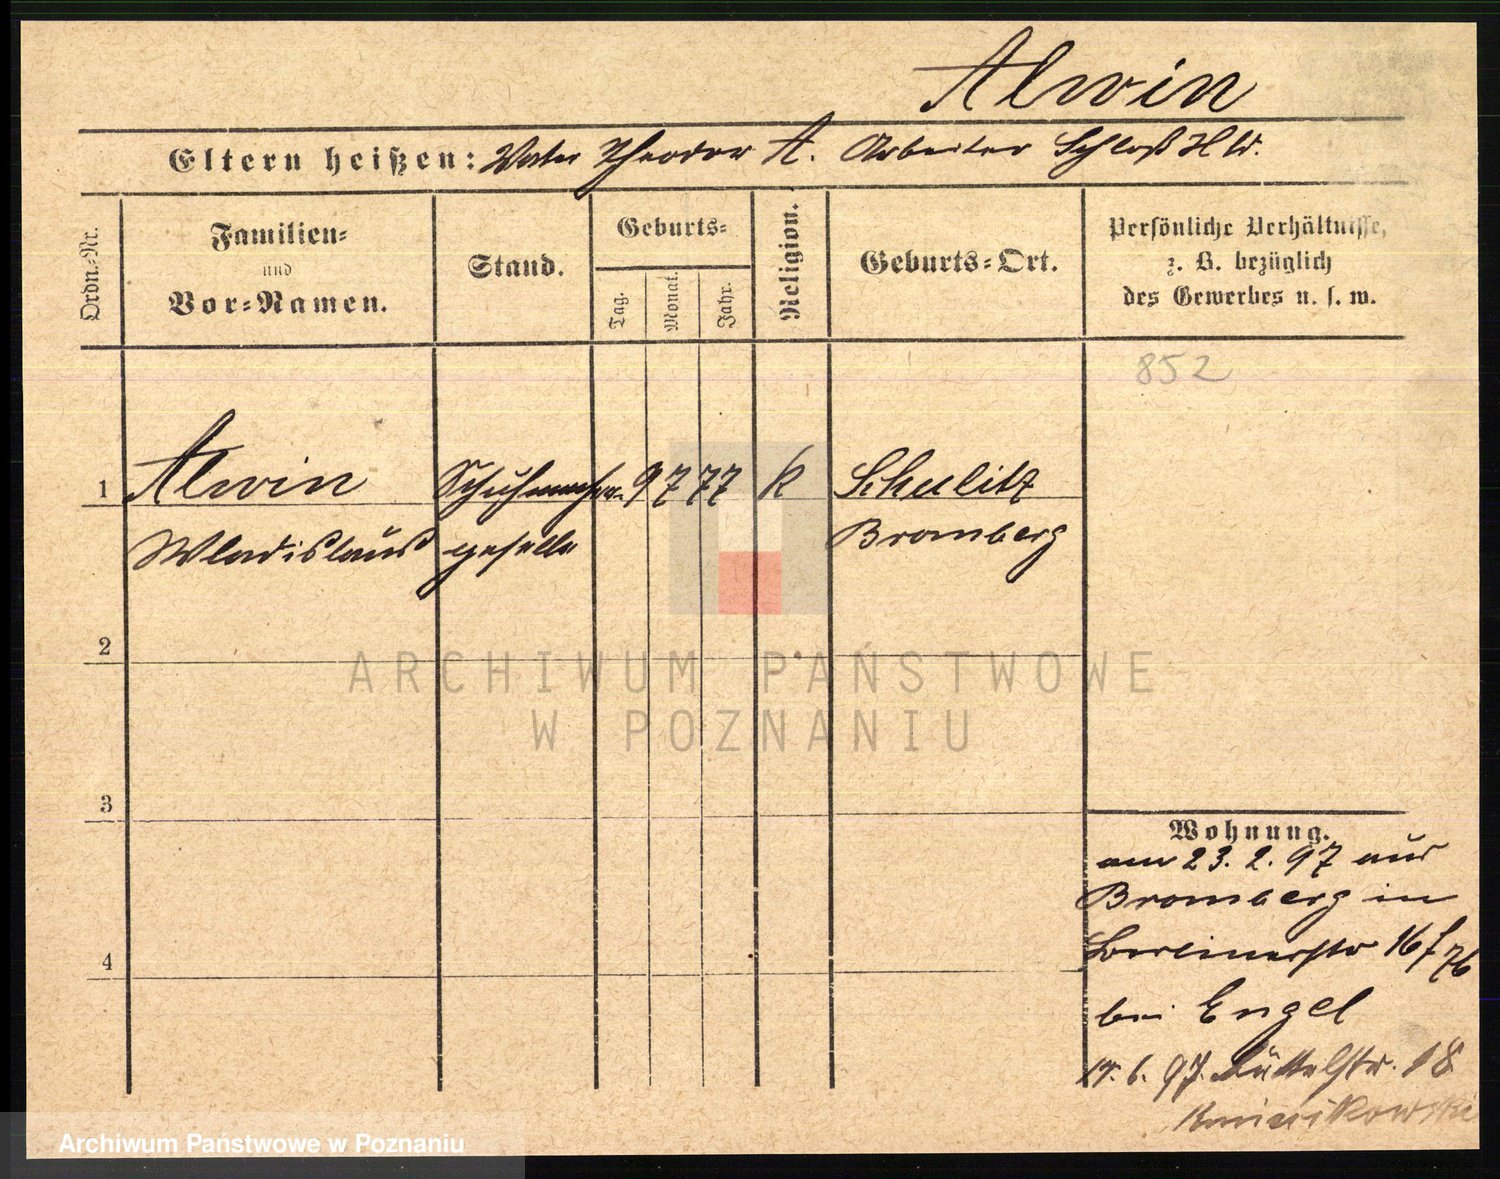 Alwin
Eltern heißen: Vater Theodor A. Arbeiter Schloß
Ordn.-Nr.
Familien-
und
Vor-Namen.
Stand.
Geburts-
Tag.
Monat.
Jahr.
Religion.
Geburts-Ort.
Persönliche Verhältnisse,
z. B. bezüglich
des Gewerbes u. s. w.
852
1 Alwin Schuhmacher- 9 7 77 k Schulitz
Wladislaus geselle Bromberg
2
3
4
Wohnung.
am 23. 2. 97 aus
Bromberg in
Berlinerstr 16
bei Engel
6. 97. Büttelstr. 18
ARCHIWUM PAŃSTWOWE
W POZNANIU
Archiwum Państwowe w Poznaniu